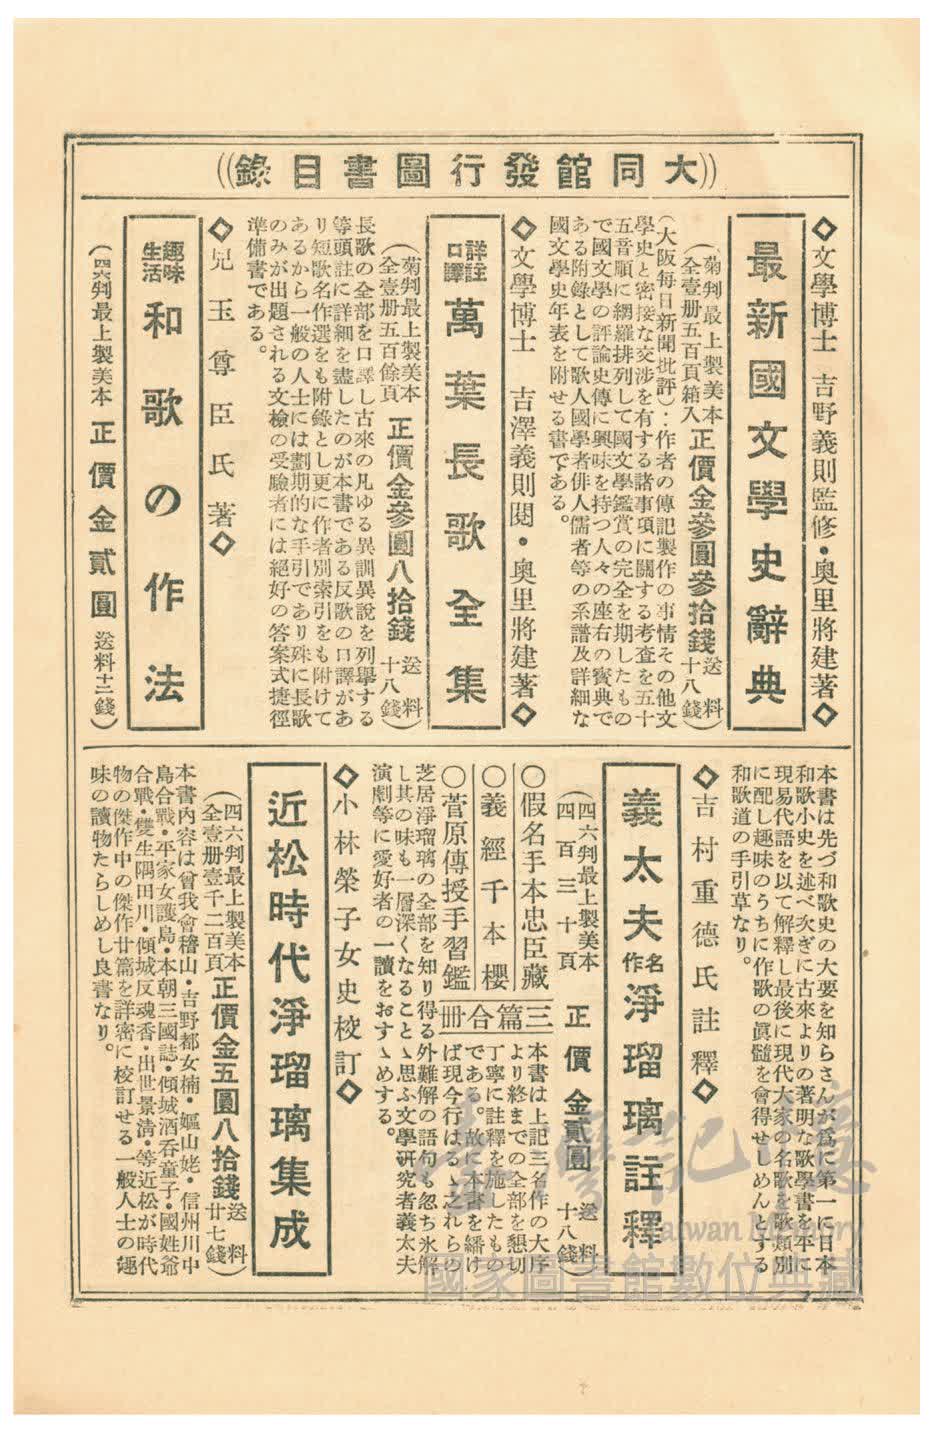 ((大同館發行圖書目錄))
◇文學博士 吉野義則監修・奧里將建著◇
最新國文學史辭典
(菊判最上製美本
全壹册五百頁箱入
正價金參圓參拾錢
送料
十八錢)
(大阪每日新聞批評)：作者の傳記製作の事情その他文
學史と密接な交渉を有する諸事項に關する考査を五十
五音順に網羅排列して國文學鑑賞の完全を期したもの
で國文學の評論史傳に興味を持つ人々の座右の寳典で
ある附錄として歌人國學者俳人儒者等の系譜及詳細な
國文學史年表を附せる書である。
◇文學博士 吉澤義則閱・奧里將建著◇
詳註
口譯
萬葉長歌全集
(菊判最上製美本
全壹册五百餘頁
正價金參圓八拾錢
送料
十八錢)
長歌の全部を口譯し古來の凡ゆる異訓異說を列擧する
等頭註に詳細を盡したのが本書である反歌の口譯があ
り短歌名作選をも附錄とし更に作者別索引をも附けて
あるから一般の人士には劃期的な手引であり殊に長歌
のみが出題される文檢の受驗者には絕好の答案式捷徑
準備書である。
◇兒玉尊臣氏著◇
趣味
生活
和歌の作法
(四六判最上製美本 正價金貳圓 送料十二錢)
本書は先づ和歌史の大要を知らさんが爲に第一に日本
和歌小史を述べ次ぎに古來よりの著明な歌學書を平に
現易代語を以て解釋し最後に現代大家の名歌を歌類別
に配し趣味のうちに作歌の眞髓を會得せしめんとする
和歌道の手引草なり。
◇吉村重德氏註釋◇
義太夫名作淨瑠璃註釋
(四六判最上製美本
四百三十頁
正價金貳圓
送料
十八錢)
○假名手本忠臣藏
○義經千本櫻
○菅原傳授手習鑑
三篇合册
本書は上記三名作の大序
より終までの全部を懇切
丁寧に註釋を施したもの
である。故に本書を繙け
ば現今行はるゝ之れらの
芝居淨瑠璃の全部を知り得る外難解の語句も忽ち氷解
し其の味も一層深くなることゝ思ふ文學研究者義太夫
演劇等に愛好者の一讀をおすゝめする。
◇小林榮子女史校訂◇
近松時代淨瑠璃集成
(四六判最上製美本
全壹册壹千二百頁
正價金五圓八拾錢
送料
廿七錢)
本書內容は曾我會稽山・吉野都女楠・嫗山姥・信州川中
島合戰・平家女護島・本朝三國誌・傾城酒呑童子・國姓爺
合戰・雙生隅田川・傾城反魂香・出世景淸・等近松が時代
物の傑作中の傑作廿篇を詳密に校訂せる一般人士の趣
味の讀物たらしめし良書なり。
臺灣記憶
Taiwan Memory
國家圖書館數位典藏